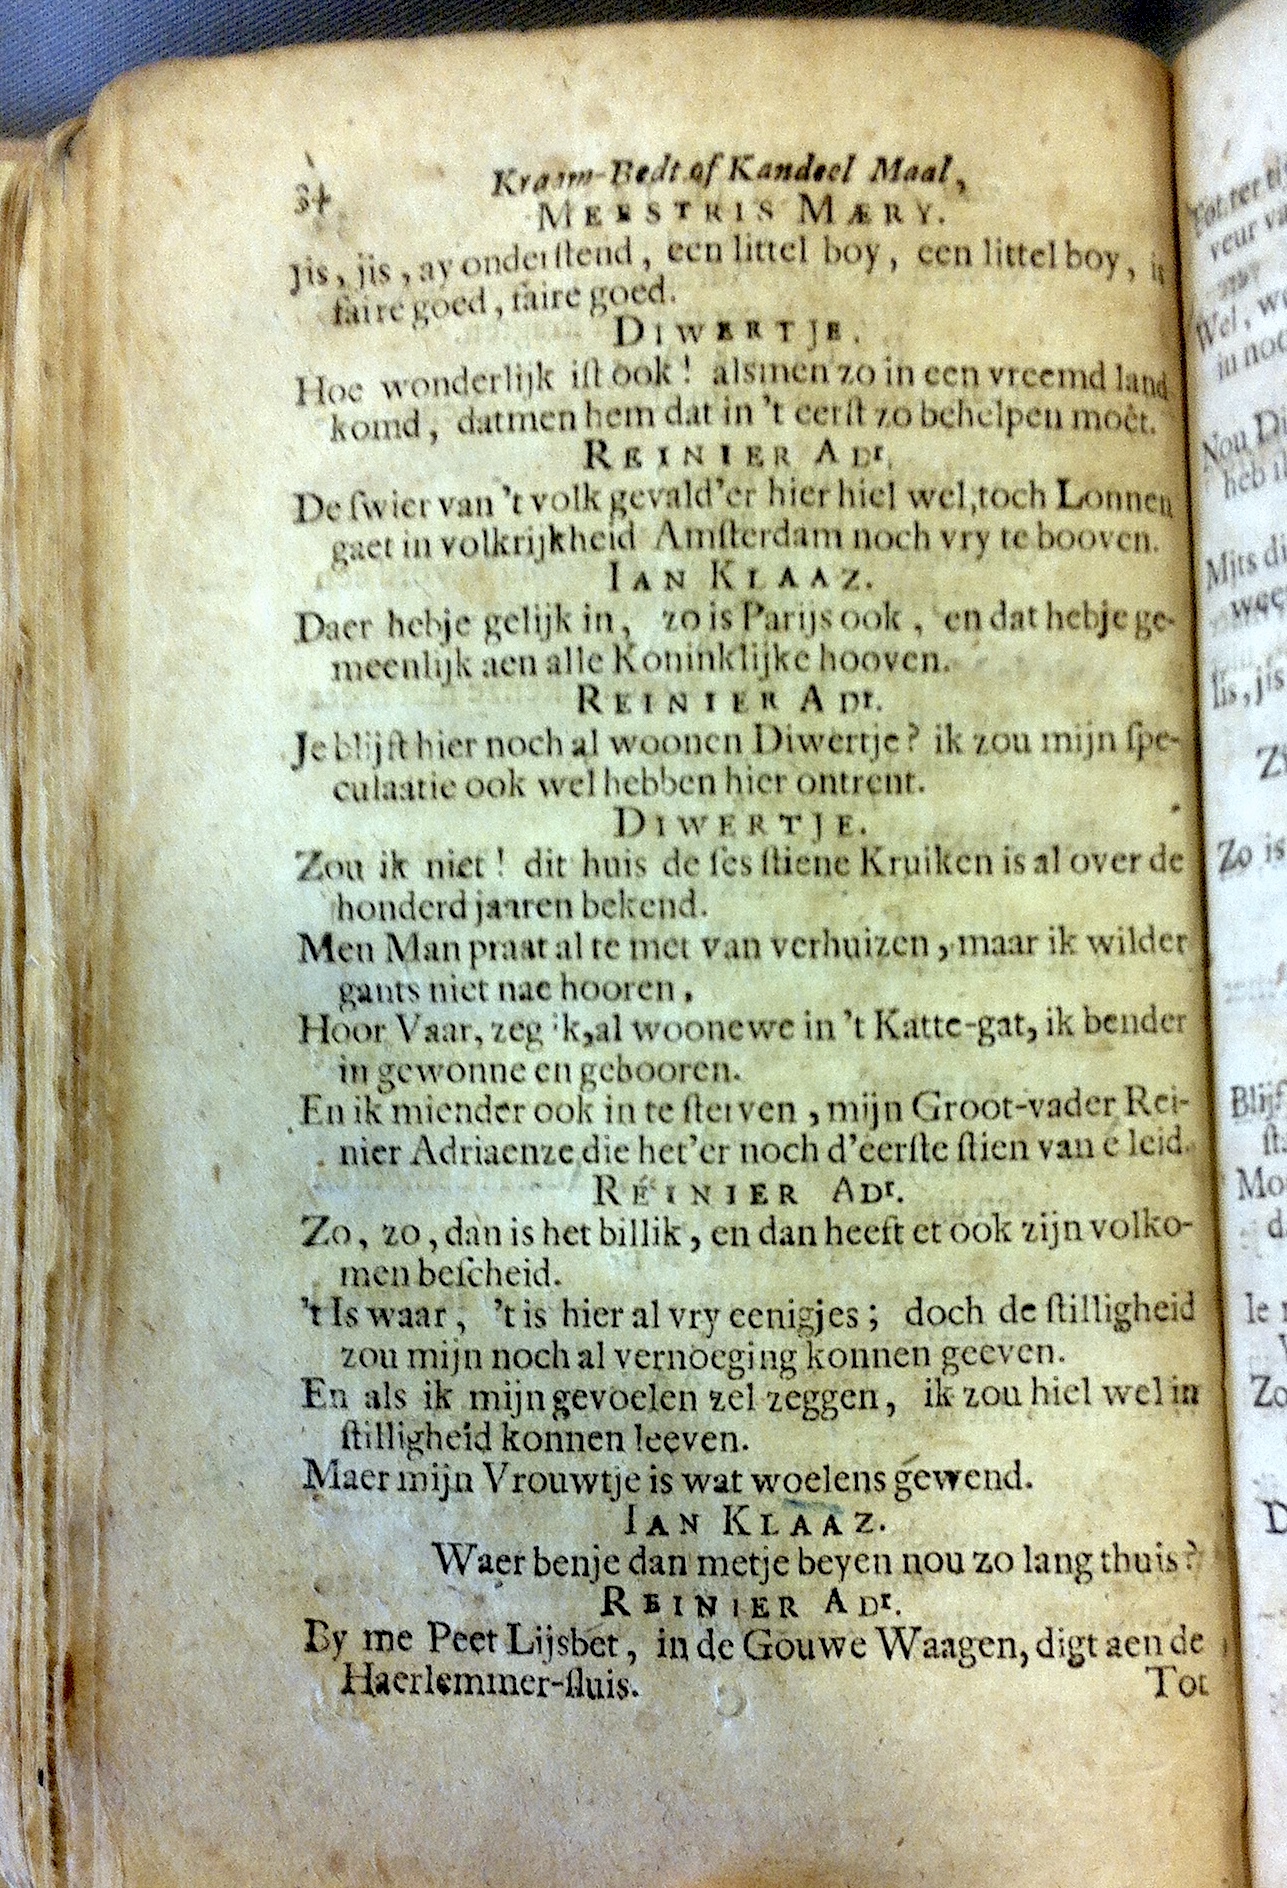 34 Kraam-Bedt of Kandeel Maal,
MEESTRIS MÆRY.
Jis, jis, ay onderſtend, een littel boy, een littel boy, is
faire goed, faire goed.
DIWERTJE.
Hoe wonderlijk iſt ook! alsmen zo in een vreemd land
komd, datmen hem dat in 't eerſt zo behelpen moet.
REINIER ADr.
De ſwier van 't volk gevald'er hier hiel wel, toch Lonnen
gaet in volkrijkheid Amſterdam noch vry te booven.
IAN KLAAZ.
Daer hebje gelijk in, zo is Parijs ook, en dat hebje ge-
meenlijk aen alle Koninklijke hooven.
REINIER ADr.
Je blijſt hier noch al woonen Diwertje? ik zou mijn ſpe-
culaatie ook wel hebben hier ontrent.
DIWERTJE.
Zou ik niet! dit huis de ſes ſtiene Kruiken is al over de
honderd jaaren bekend.
Men Man praat al te met van verhuizen, maar ik wilder
gants niet nae hooren,
Hoor Vaar, zeg ik, al woonewe in 't Katte-gat, ik bender
in gewonne en gebooren.
En ik miender ook in te ſterven, mijn Groot-vader Rei-
nier Adriaenze die het'er noch d'eerſte ſtien van e leid.
REINIER ADr.
Zo, zo, dan is het billik, en dan heeft et ook zijn volko-
men beſcheid.
't Is waar, 't is hier al vry eenigjes; doch de ſtilligheid
zou mijn noch al vernoeging konnen geeven.
En als ik mijn gevoelen zel zeggen, ik zou hiel wel in
ſtilligheid konnen leeven.
Maer mijn Vrouwtje is wat woelens gewend.
IAN KLAAZ.
Waer benje dan metje beyen nou zo lang thuis?
REINIER ADr.
By me Peet Lijsbet, in de Gouwe Waagen, digt aen de
Haerlemmer-ſluis.
Tot